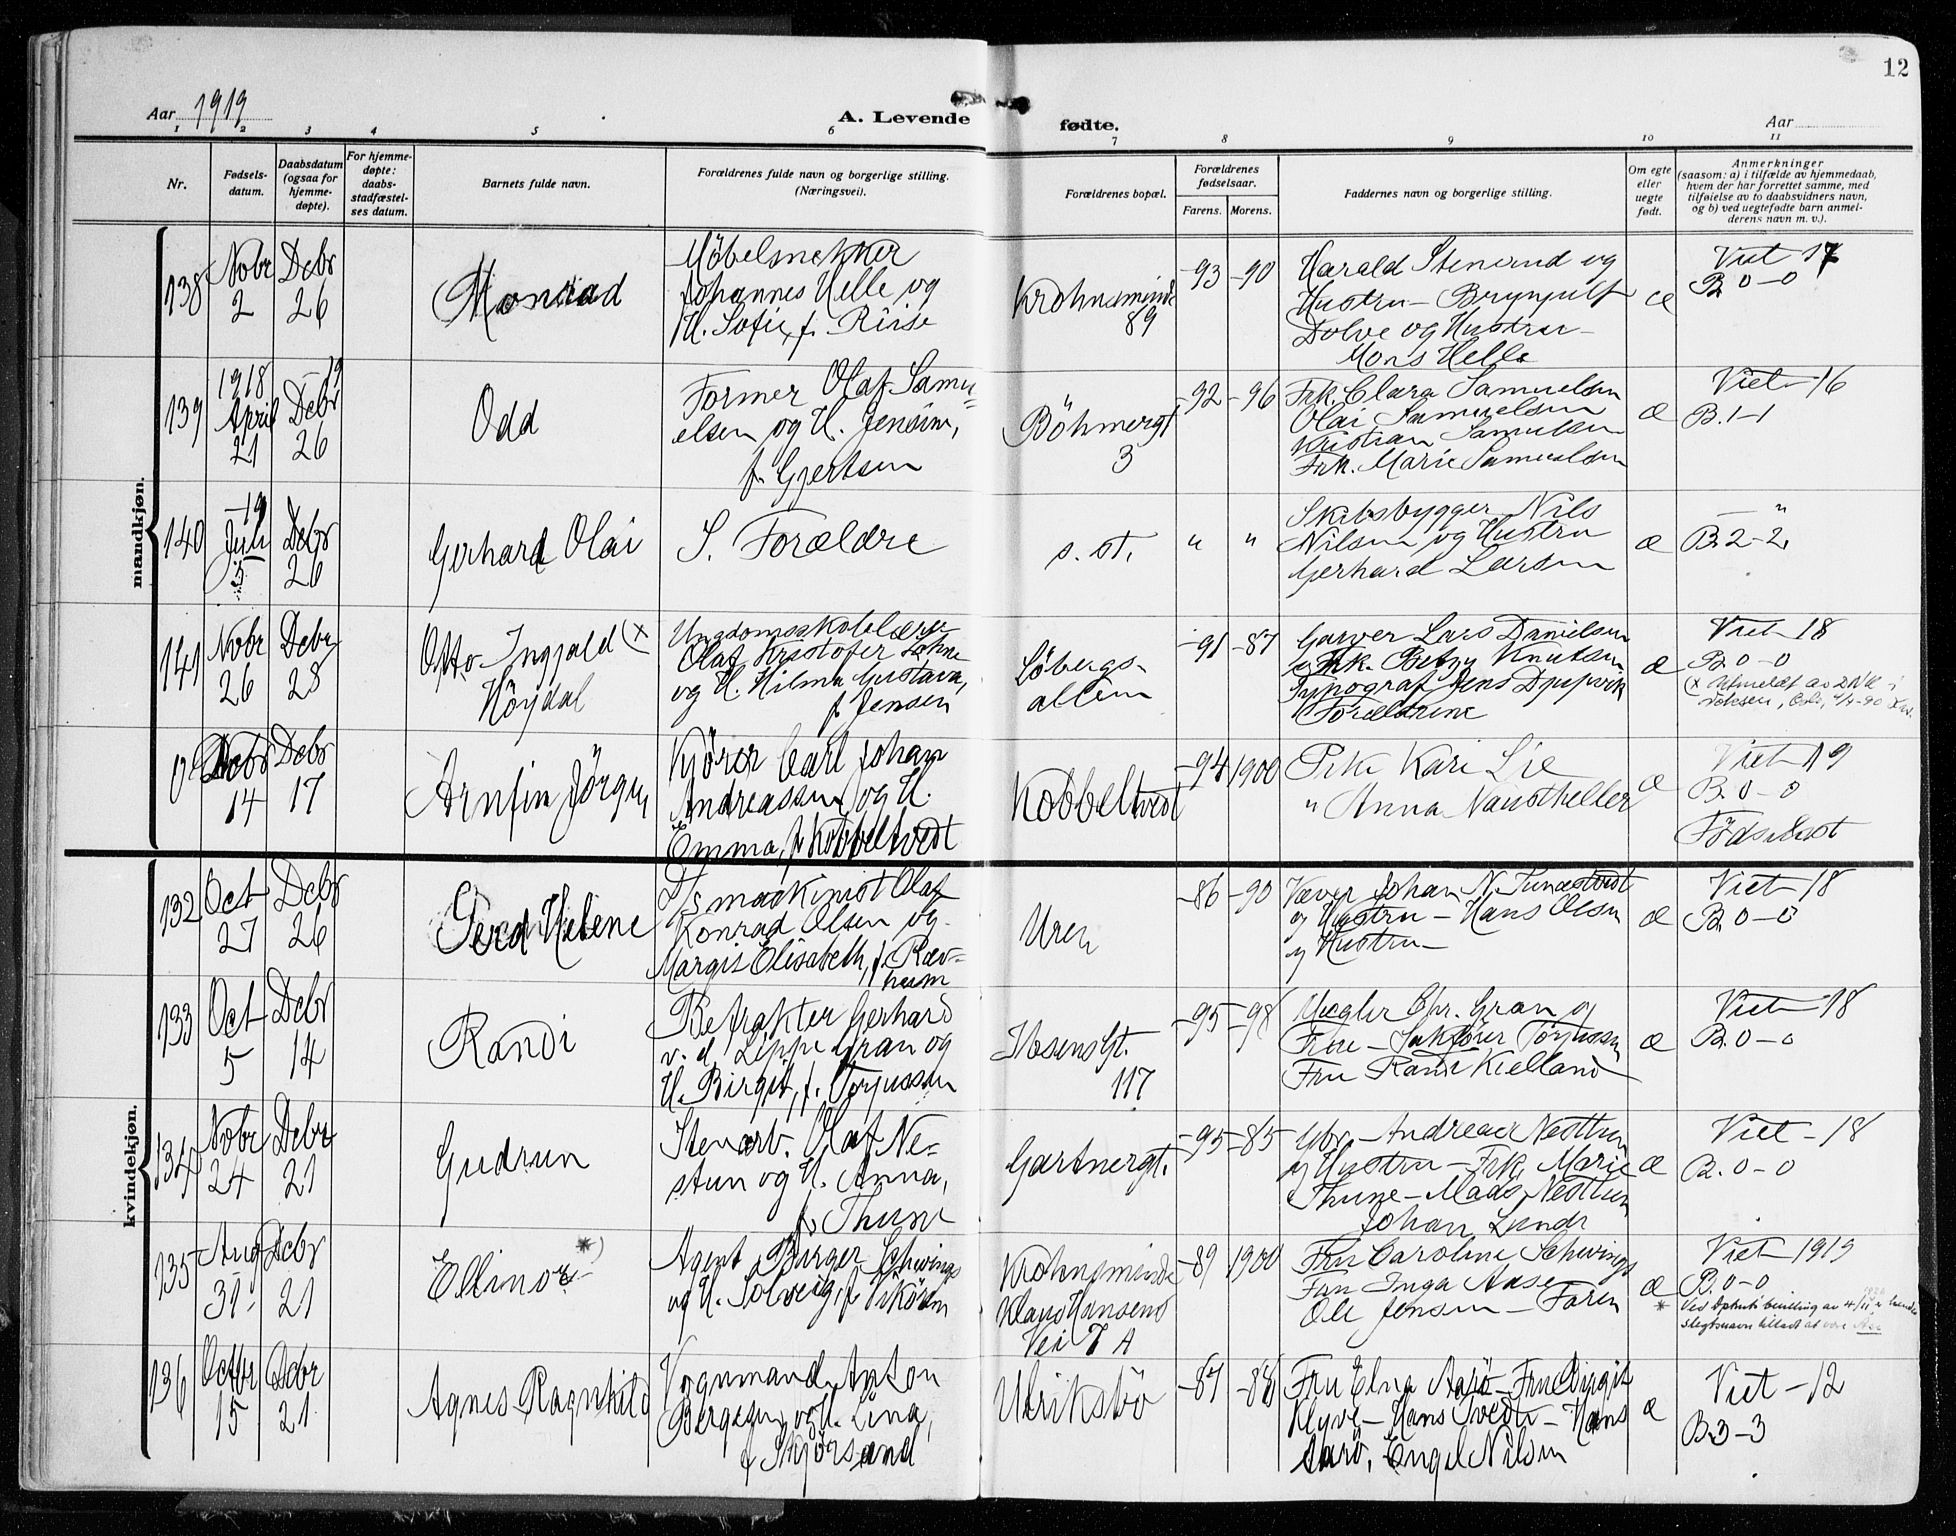 12
Aar 1919
A. Levende
fødte.
Aar
1 2 3 4 5 6 7 8 9 10 11
Nr.
Fødsels-
datum.
Daabsdatum
(ogsaa for
hjemme-
døpte).
For hjemme-
døpte:
daabs-
stadfæstel-
ses datum.
Barnets fulde navn.
Forældrenes fulde navn og borgerlige stilling.
(Næringsvei).
Forældrenes bopæl.
Forældrenes
fødselsaar.
Farens. Morens.
Faddernes navn og borgerlige stilling.
Om egte
eller
uegte
født.
Anmerkninger
(saasom: a) i tilfælde av hjemmedaab,
hvem der har forrettet samme, med
tilføielse av to daabsvidners navn,
og b) ved uegtefødte barn anmel-
derens navn m. v.).
mandkjøn.
138
Nobr
2
Debr
26
Monrad
Møbelsnekker
Johannes Helle og
H. Sofie, f. Riise
Krohnsminde
89
-93 -90
Harald Stenerud og
Hustru - Brynjulf
Dolve og Hustru -
Mons Helle
æ
Viet 17
B. 0-0
139
1918
April
21
-19
Debr
26
Odd
Former Olaf Samu-
elsen og H. Jensine,
f. Gjertsen
Böhmergt
3
-92 -96
Frk. Clara Samuelsen
Olai Samuelsen
Kristian Samuelsen
Frk. Marie Samuelsen
æ
Viet -16
B. 1-1
140
-19
Juli
5
Debr
26
Gerhard Olai
S. Forældre
s. st.
" "
Skibsbygger Nils
Nilsen og Hustru
Gerhard Larsen
æ
— "
B. 2-2
141
Nobr
26
Debr
28
Otto Ingjald (x
Höydal
Ungdomsskolelærer
Olaf Kristofer Lohne
og H. Hilma Gustava,
f. Jensen
Söbergs-
alleen
-91 -87
Garver Lars Danielsen
Frk. Betzy Knutsen
Typograf Jens Djupvik
Forældrene
æ
Viet -18
B. 0-0
(x Utmeldt av DNK i
14
Debr
17
Arnfin Jörgen
Kjörer Carl Johan
Andreassen og H.
Emma, f. Kobbeltvedt
Kobbeltvedt
-94 1900
Frk. Kari Lie
" Anna Naustheller
æ
Viet 19
B. 0-0
kvindekjøn.
132
Oct
27
Debr
26
Gerd Helene
maskinist Olaf
Konrad Olsen og
Margit Elisabeth, f. Ræv-
heim
Uren
-86 -90
Væver Johan N. Tunestvedt
og Hustru - Hans Olsen
og Hustru -
æ
Viet -18
B. 0-0
133
Oct
5
Debr
14
Randi
Befrakter Gerhard
v. d. Lippe Gran og
H. Birgit, f. Torjussen
Ibsens Gt.
117
-95 -98
Megler Chr. Gran og
Frue - Sakfører Torjussen
Fru Randi Kielland
æ
Viet -18
B. 0-0
134
Nobr
24
Debr
21
Gudrun
Stenarb. Olaf Ne-
stun og H. Anna,
f. Thune
Gartnergt.
-95 -85
Gbr. Andreas Nesttun
og Hustru - Frk. Marie
Thune - Mads Nesttun
Johan Lunde
æ
Viet -18
B. 0-0
135
Aug
31
Debr
21
Ellinor *)
Agent Birger Schwings
og H. Solveig, f.
Krohnsminde
Klaus Hansens
Vei 7 A
-89 1900
Fru Caroline Schwings
Fru Inga Aase
Ole Jensen - Faren
æ
*
Viet 1919
B. 0-0
136
Octbr
15
Debr
21
Agnes Ragnhild
Vognmand Anton
Bergesen og H. Lina,
f. Skjörsand
Ulriksbö
-87 -88
Fru Elna Aarö - Fru Birgit
Klyve - Hans Tvedt - Hans
Aarö, Engel Nilsen
æ
Viet -12
B. 3-3